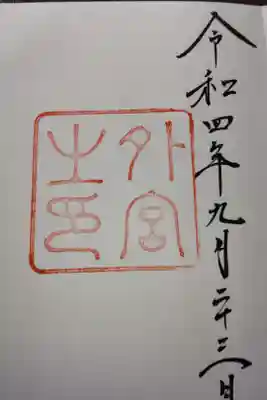 令和四年九月二十三日
外宮
之印